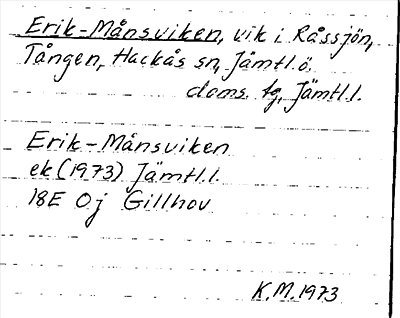 Erik-Månsviken, vik i Råssjön,
Tången, Hackås sn, Jämtl.ö.
doms. tg, Jämtl.l.
Erik-Månsviken
ek (1973) Jämtl.l.
18E Oj Gillhov
K.M.1973